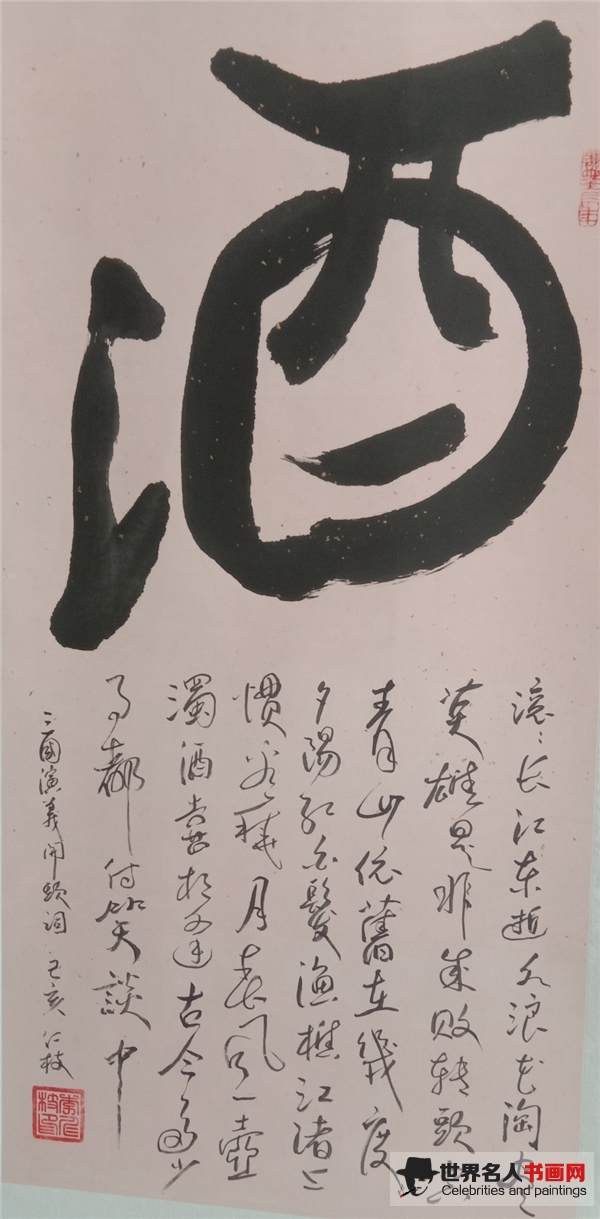 酒
滚滚长江東逝水浪花淘尽
英雄是非成败转頭空
青山依舊在幾度
夕陽红白髮渔樵江渚上
惯看秋月春风一壶
濁酒喜相逢古今多少
事都付笑談中
三國演義開頭詞 己亥 仁枝
世界名人书画网
Celebrities and paintings